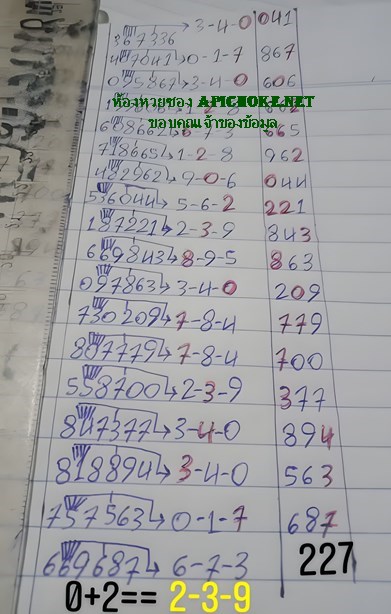 367336 3-4-0 041
417041 0-1-7 867
015867 3-4-0 606
ห้องหวยของ APICHOKE.NET
ขอบคุณเจ้าของข้อมูล
608662 6-7-3 665
718665 1-2-8 962
482962 9-0-6 044
536044 5-6-2 221
187221 2-3-9 843
669843 8-9-5 863
097863 3-4-0 209
730209 7-8-4 779
807779 7-8-4 700
558700 2-3-9 377
847377 3-4-0 894
818894 3-4-0 563
757563 0-1-7 687
669687 6-7-3 227
0+2== 2-3-9